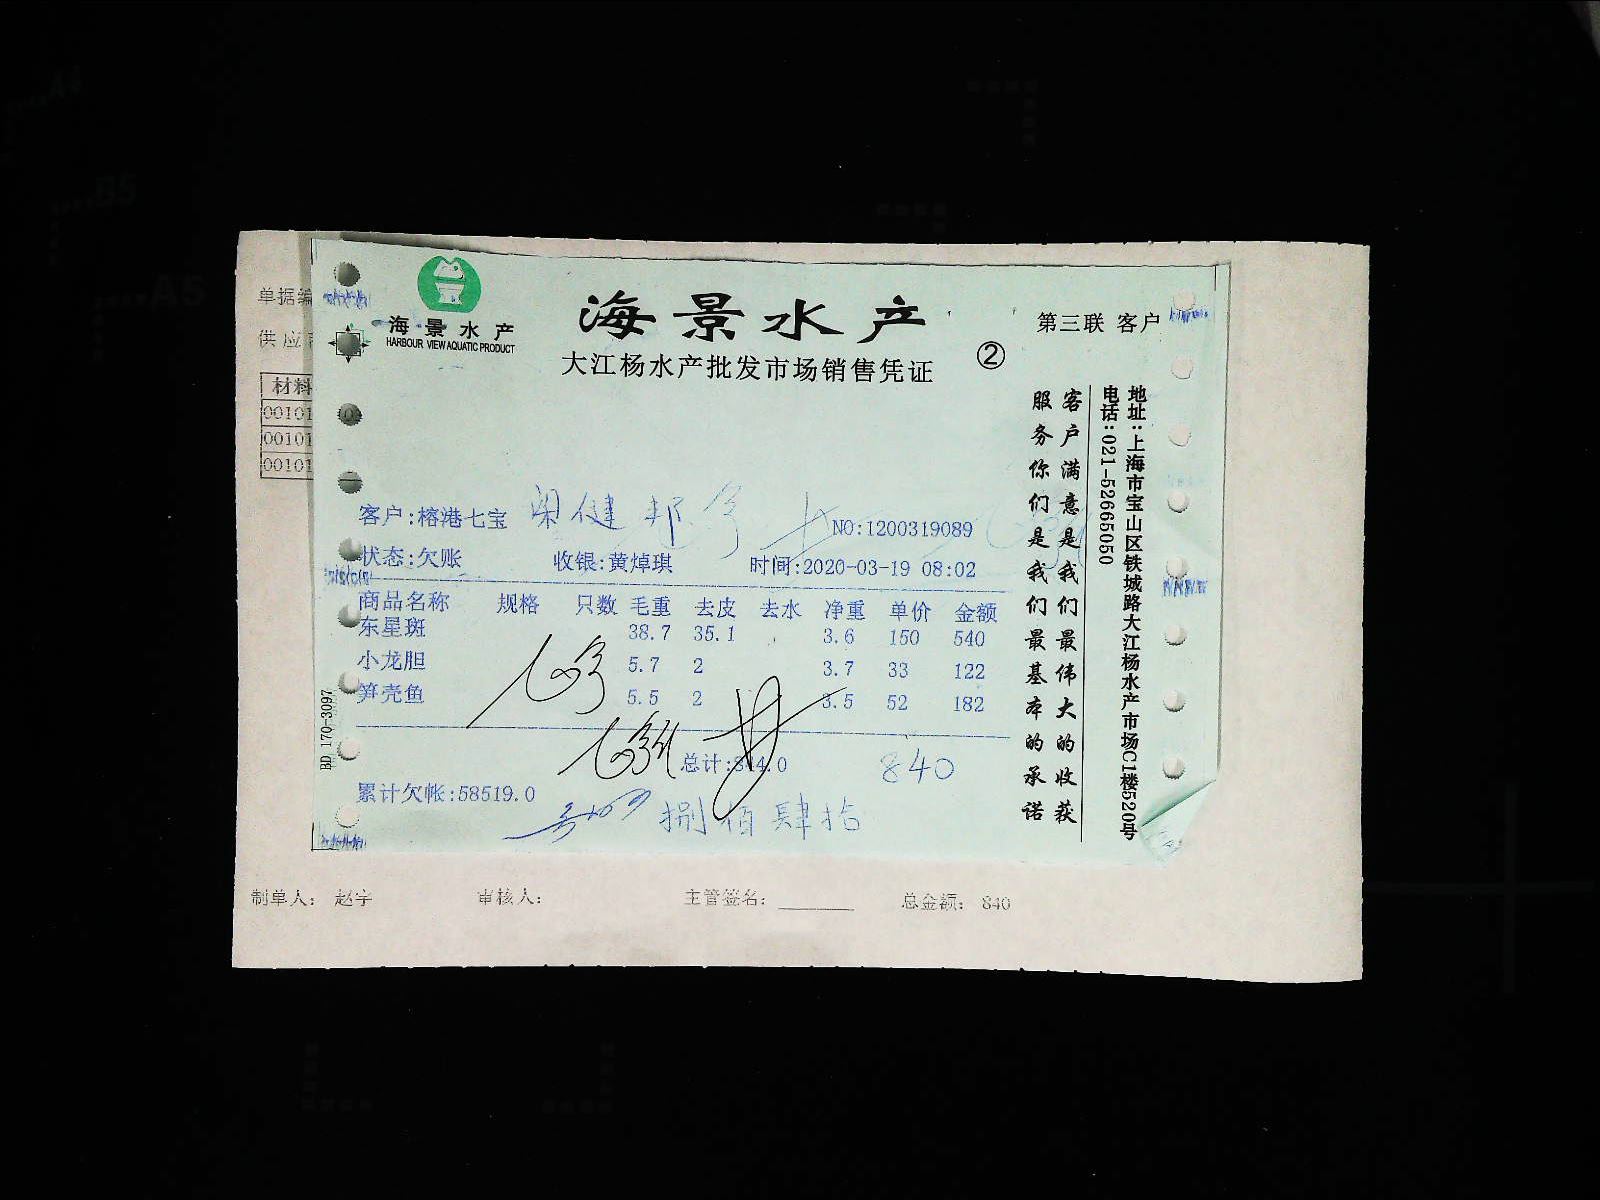 单据编
供应
材料
00101
00101
00101
海景水产
HARBOUR VIEW AQUATIC PRODUCT
海景水产
大江杨水产批发市场销售凭证
②
第三联 客户
客户:榕港七宝
NO:1200319089
状态:欠账 收银:黄焯琪 时间:2020-03-19 08:02
商品名称 规格 只数 毛重 去皮 去水 净重 单价 金额
东星斑 38.7 35.1 3.6 150 540
小龙胆 5.7 2 3.7 33 122
笋壳鱼 5.5 2 3.5 52 182
总计:844.0
840
累计欠帐:58519.0
捌佰肆拾
BD 170-3097
客户满意是我们最伟大的收获
服务你们是我们最基本的承诺
地址:上海市宝山区铁城路大江杨水产市场C1楼520号
电话:021-52665050
制单人: 赵宇 审核人: 主管签名: 总金额: 840